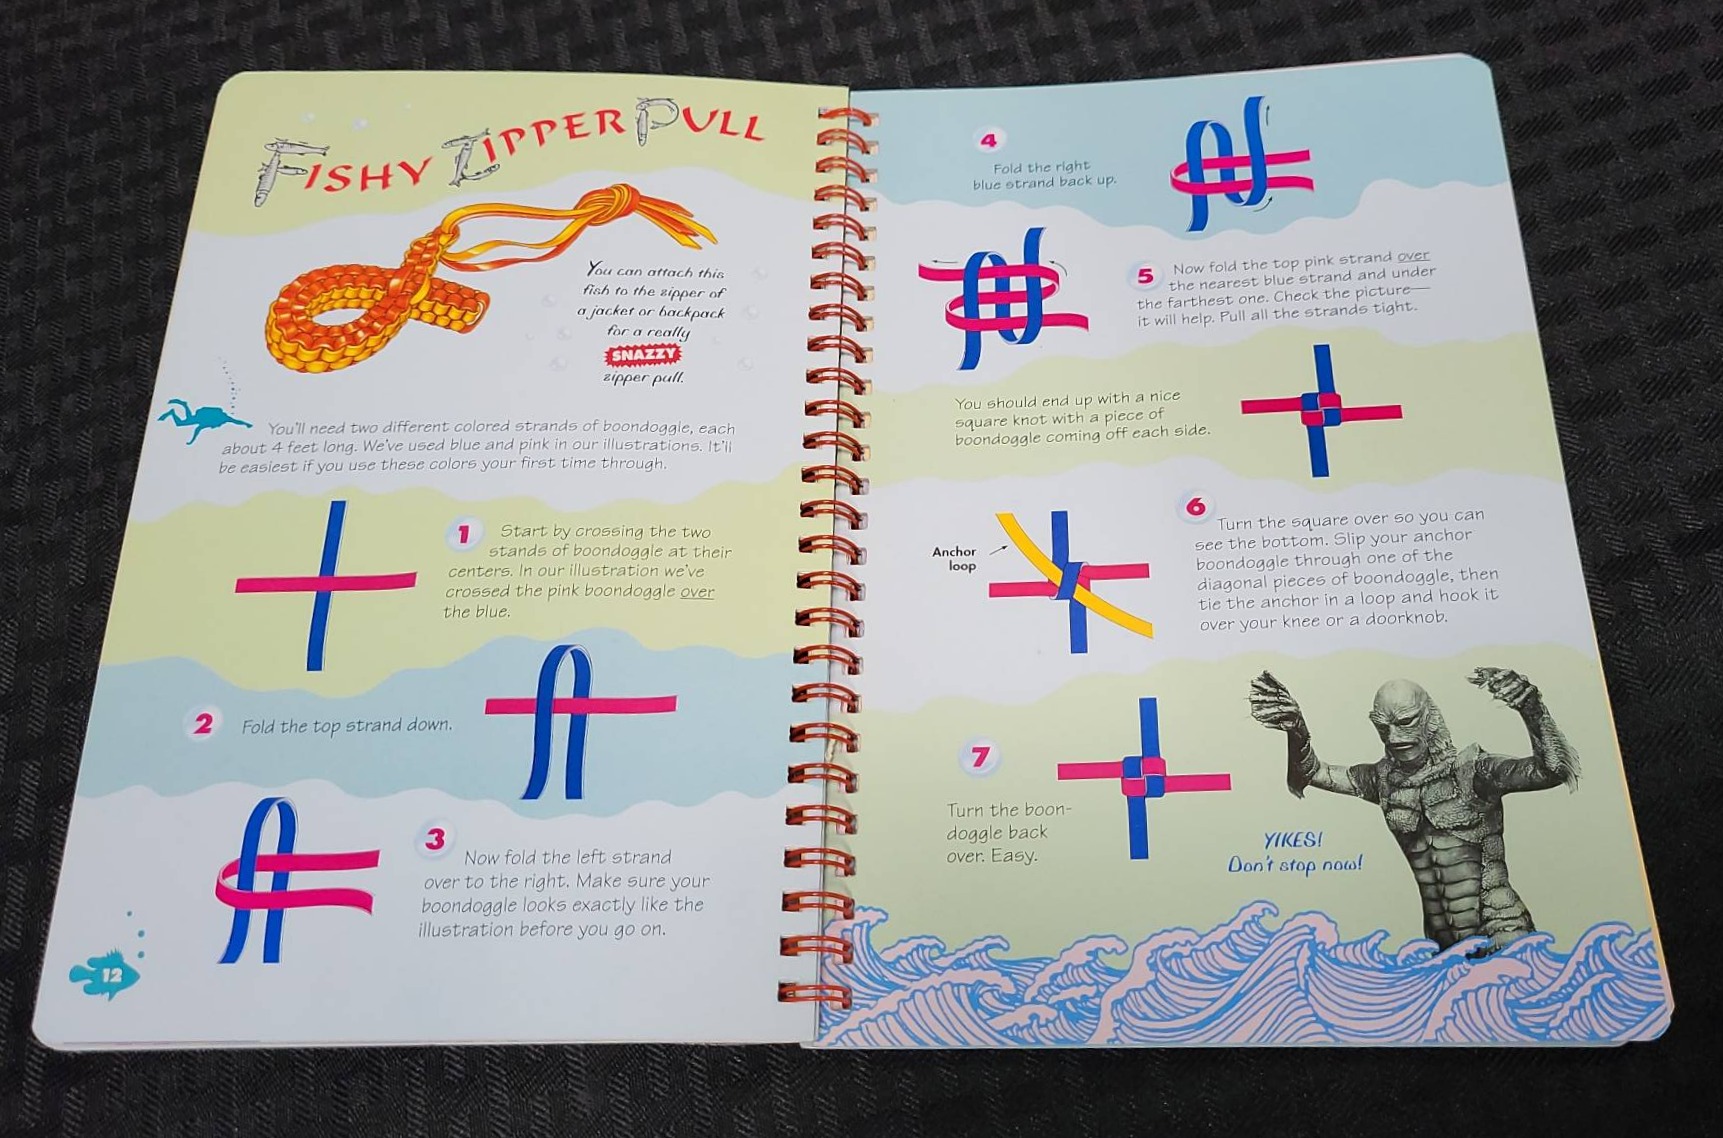 FISHY ZIPPER PULL
You can attach this
fish to the zipper of
a jacket or backpack
for a really
SNAZZY
zipper pull.
You'll need two different colored strands of boondoggle, each
about 4 feet long. We've used blue and pink in our illustrations. It'll
be easiest if you use these colors your first time through.
1
Start by crossing the two
stands of boondoggle at their
centers. In our illustration we've
crossed the pink boondoggle over
the blue.
2
Fold the top strand down.
3
Now fold the left strand
over to the right. Make sure your
boondoggle looks exactly like the
illustration before you go on.
12
4
Fold the right
blue strand back up.
5
Now fold the top pink strand over
the nearest blue strand and under
the farthest one. Check the picture—
it will help. Pull all the strands tight.
You should end up with a nice
square knot with a piece of
boondoggle coming off each side.
6
Anchor
loop
Turn the square over so you can
see the bottom. Slip your anchor
boondoggle through one of the
diagonal pieces of boondoggle, then
tie the anchor in a loop and hook it
over your knee or a doorknob.
7
Turn the boon-
doggle back
over. Easy.
YIKES!
Don't stop now!